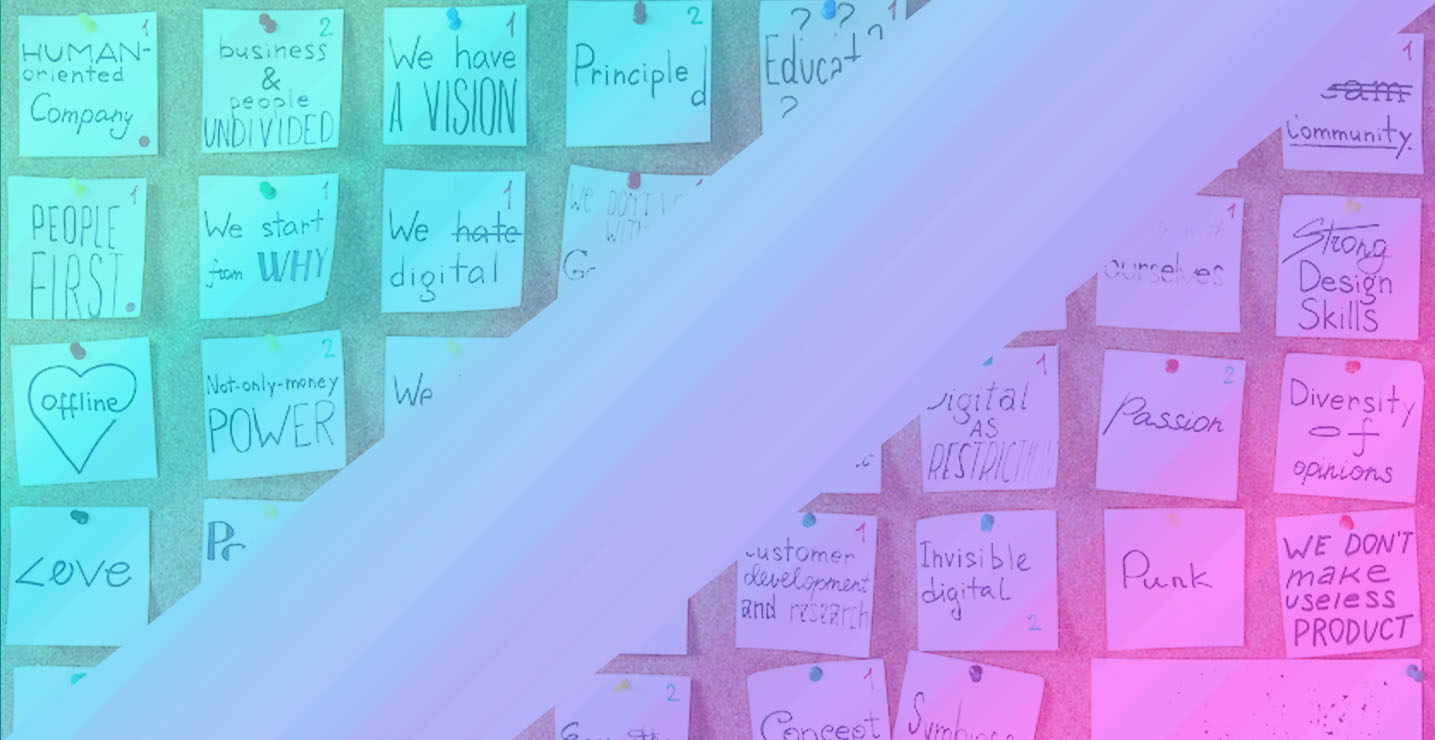 1
HUMAN-
oriented
Company
2
business
&
people
UNDIVIDED
1
We have
A VISION
2
Principle
d
1
? ?
Educat
?
1
Community.
1
PEOPLE
FIRST
1
We start
from WHY
1
We hate
digital
We DON'T
WITH
1
with
ourselves
Strong
Design
Skills
offline
2
Not-only-money
POWER
We
1
AS
2
Passion
Diversity
of
opinions
Love
1
development
and research
Invisible
digital
2
Punk
WE DON'T
make
useless
PRODUCT
2
1
Concept